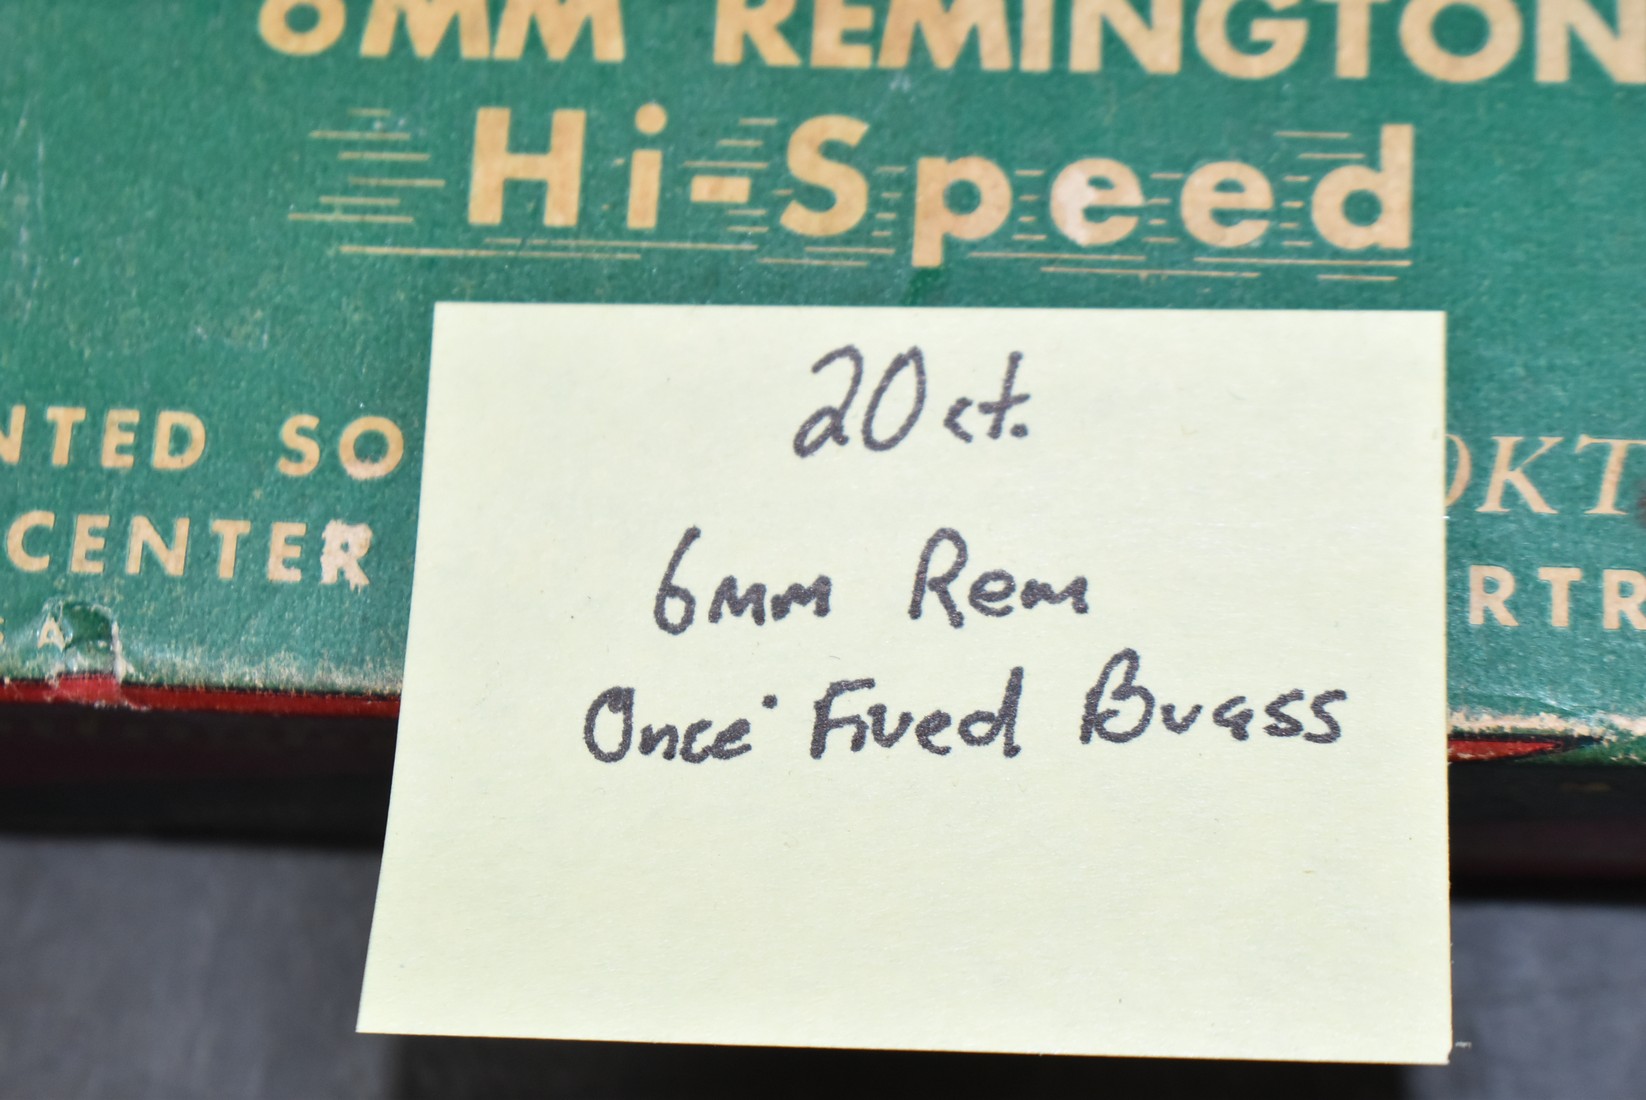 6MM REMINGTON
Hi-Speed
NTED SO
OKT
CENTER
RTR
S A
20 ct.
6mm Rem
Once Fired Brass